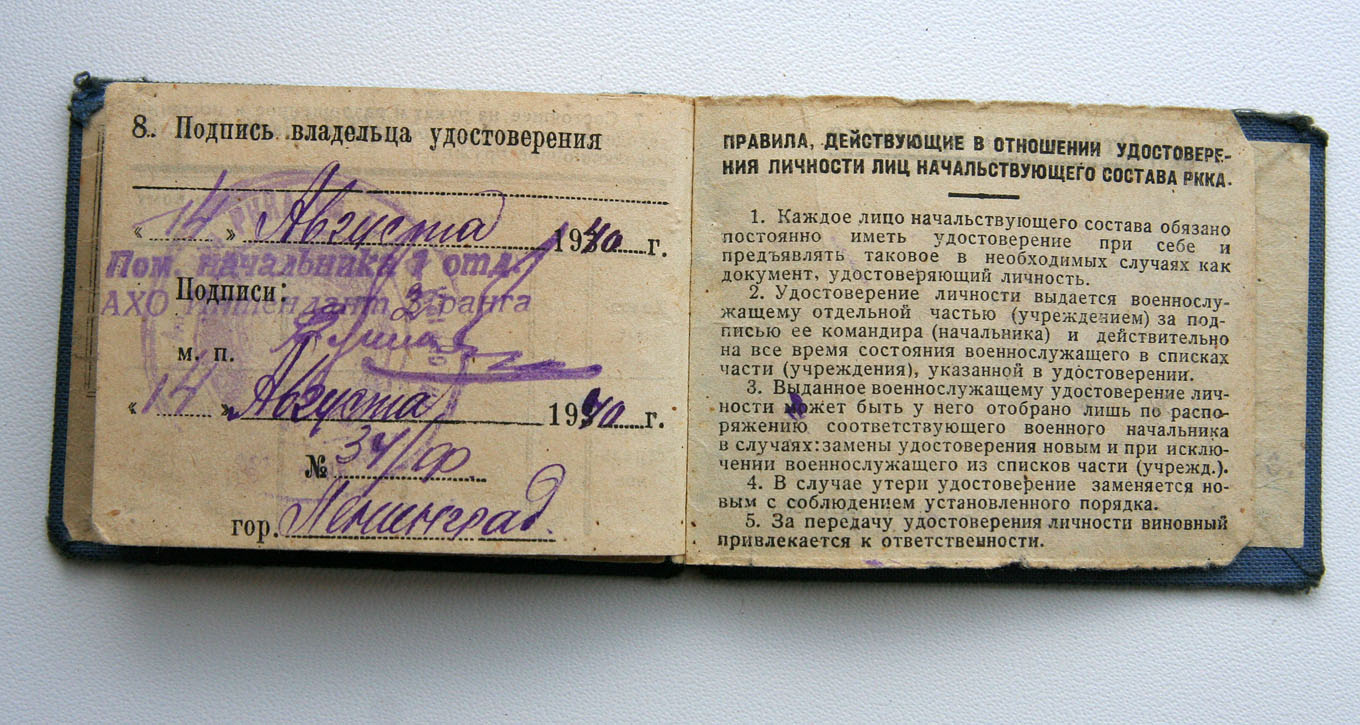 8. Подпись владельца удостоверения
« 14 » Августа 1940 г.
Пом. начальника 1 отд.
АХО Интендант 3 ранга
Подписи:
м. п.
« 14 » Августа 1940 г.
№ 34/ф
гор. Ленинград.
ПРАВИЛА, ДЕЙСТВУЮЩИЕ В ОТНОШЕНИИ УДОСТОВЕРЕ-
НИЯ ЛИЧНОСТИ ЛИЦ НАЧАЛЬСТВУЮЩЕГО СОСТАВА РККА.
1. Каждое лицо начальствующего состава обязано
постоянно иметь удостоверение при себе и
предъявлять таковое в необходимых случаях как
документ, удостоверяющий личность.
2. Удостоверение личности выдается военнослу-
жащему отдельной частью (учреждением) за под-
писью ее командира (начальника) и действительно
на все время состояния военнослужащего в списках
части (учреждения), указанной в удостоверении.
3. Выданное военнослужащему удостоверение лич-
ности может быть у него отобрано лишь по распо-
ряжению соответствующего военного начальника
в случаях: замены удостоверения новым и при исклю-
чении военнослужащего из списков части (учрежд.).
4. В случае утери удостоверение заменяется но-
вым с соблюдением установленного порядка.
5. За передачу удостоверения личности виновный
привлекается к ответственности.